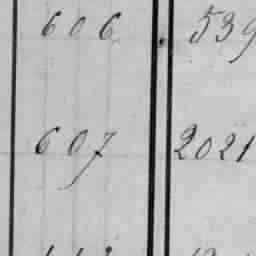 606 539
607 2021